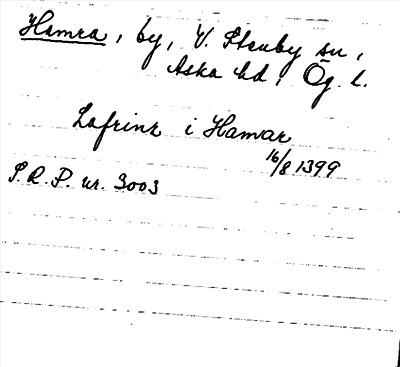 Hamra, by, V. Stenby sn,
Aska hd, Ög. l.
Lafrinz i Hamar
16/8 1399
S.R.P. nr. 3003